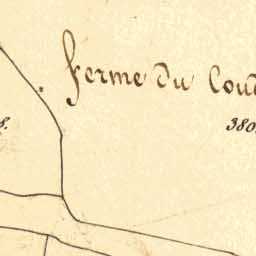 ferme du Cou
380
8.